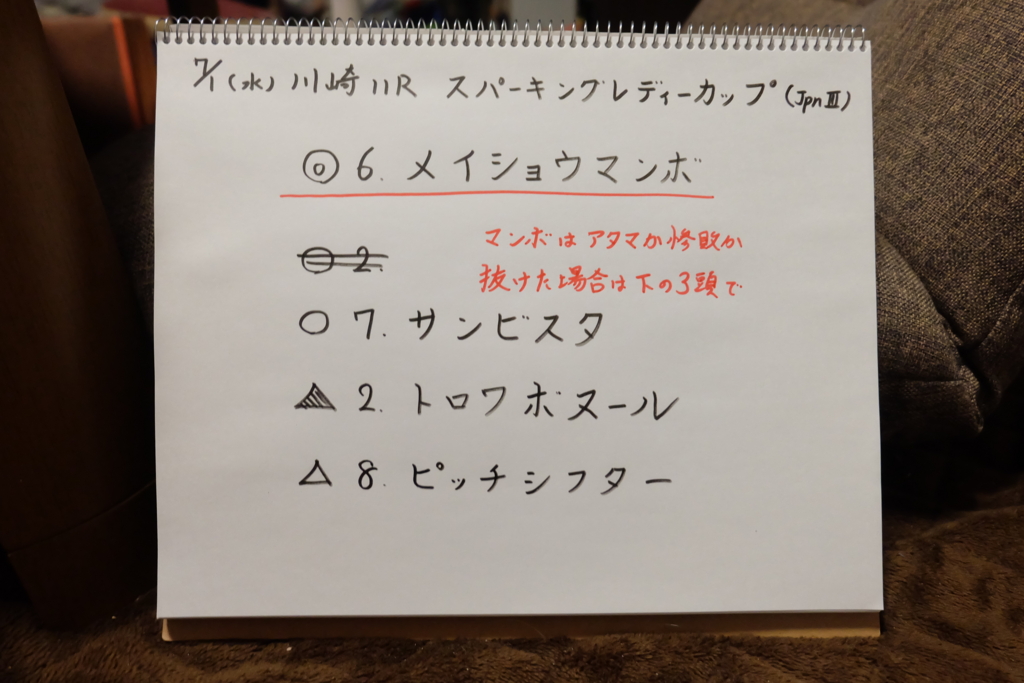 7/1(水) 川崎11R スパーキングレディーカップ(JpnⅢ)
◎ 6. メイショウマンボ
マンボはアタマか惨敗か
○ 2.
抜けた場合は下の3頭で
○ 7. サンビスタ
▲ 2. トロワボヌール
△ 8. ピッチシフター